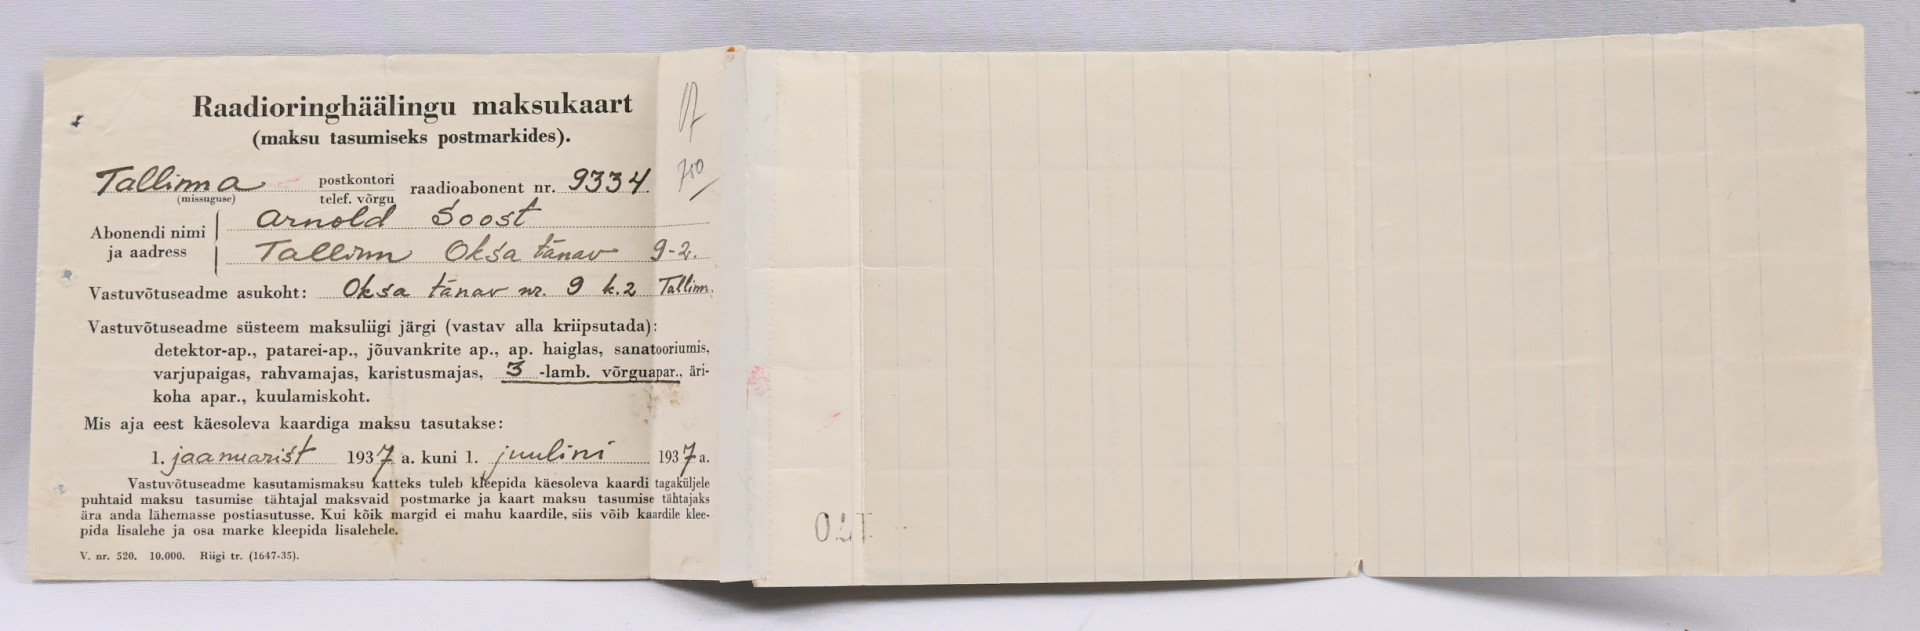 Raadioringhäälingu maksukaart
(maksu tasumiseks postmarkides).
Tallinna postkontori raadioabonent nr. 9334
(missuguse) telef. võrgu
Abonendi nimi ja aadress
Arnold Soost
Tallinn Oksa tänav 9-2.
Vastuvõtuseadme asukoht: Oksa tänav nr. 9 k.2 Tallinn.
Vastuvõtuseadme süsteem maksuliigi järgi (vastav alla kriipsutada):
detektor-ap., patarei-ap., jõuvankrite ap., ap. haiglas, sanatooriumis,
varjupaigas, rahvamajas, karistusmajas, 3 -lamb. võrguapar., äri-
koha apar., kuulamiskoht.
Mis aja eest käesoleva kaardiga maksu tasutakse:
1. jaanuarist 1937 a. kuni 1. juulini 1937 a.
Vastuvõtuseadme kasutamismaksu katteks tuleb kleepida käesoleva kaardi tagaküljele
puhtaid maksu tasumise tähtajal maksvaid postmarke ja kaart maksu tasumise tähtajaks
ära anda lähemasse postiasutusse. Kui kõik margid ei mahu kaardile, siis võib kaardile klee-
pida lisalehe ja osa marke kleepida lisalehele.
V. nr. 520. 10.000. Riigi tr. (1647-35).
750